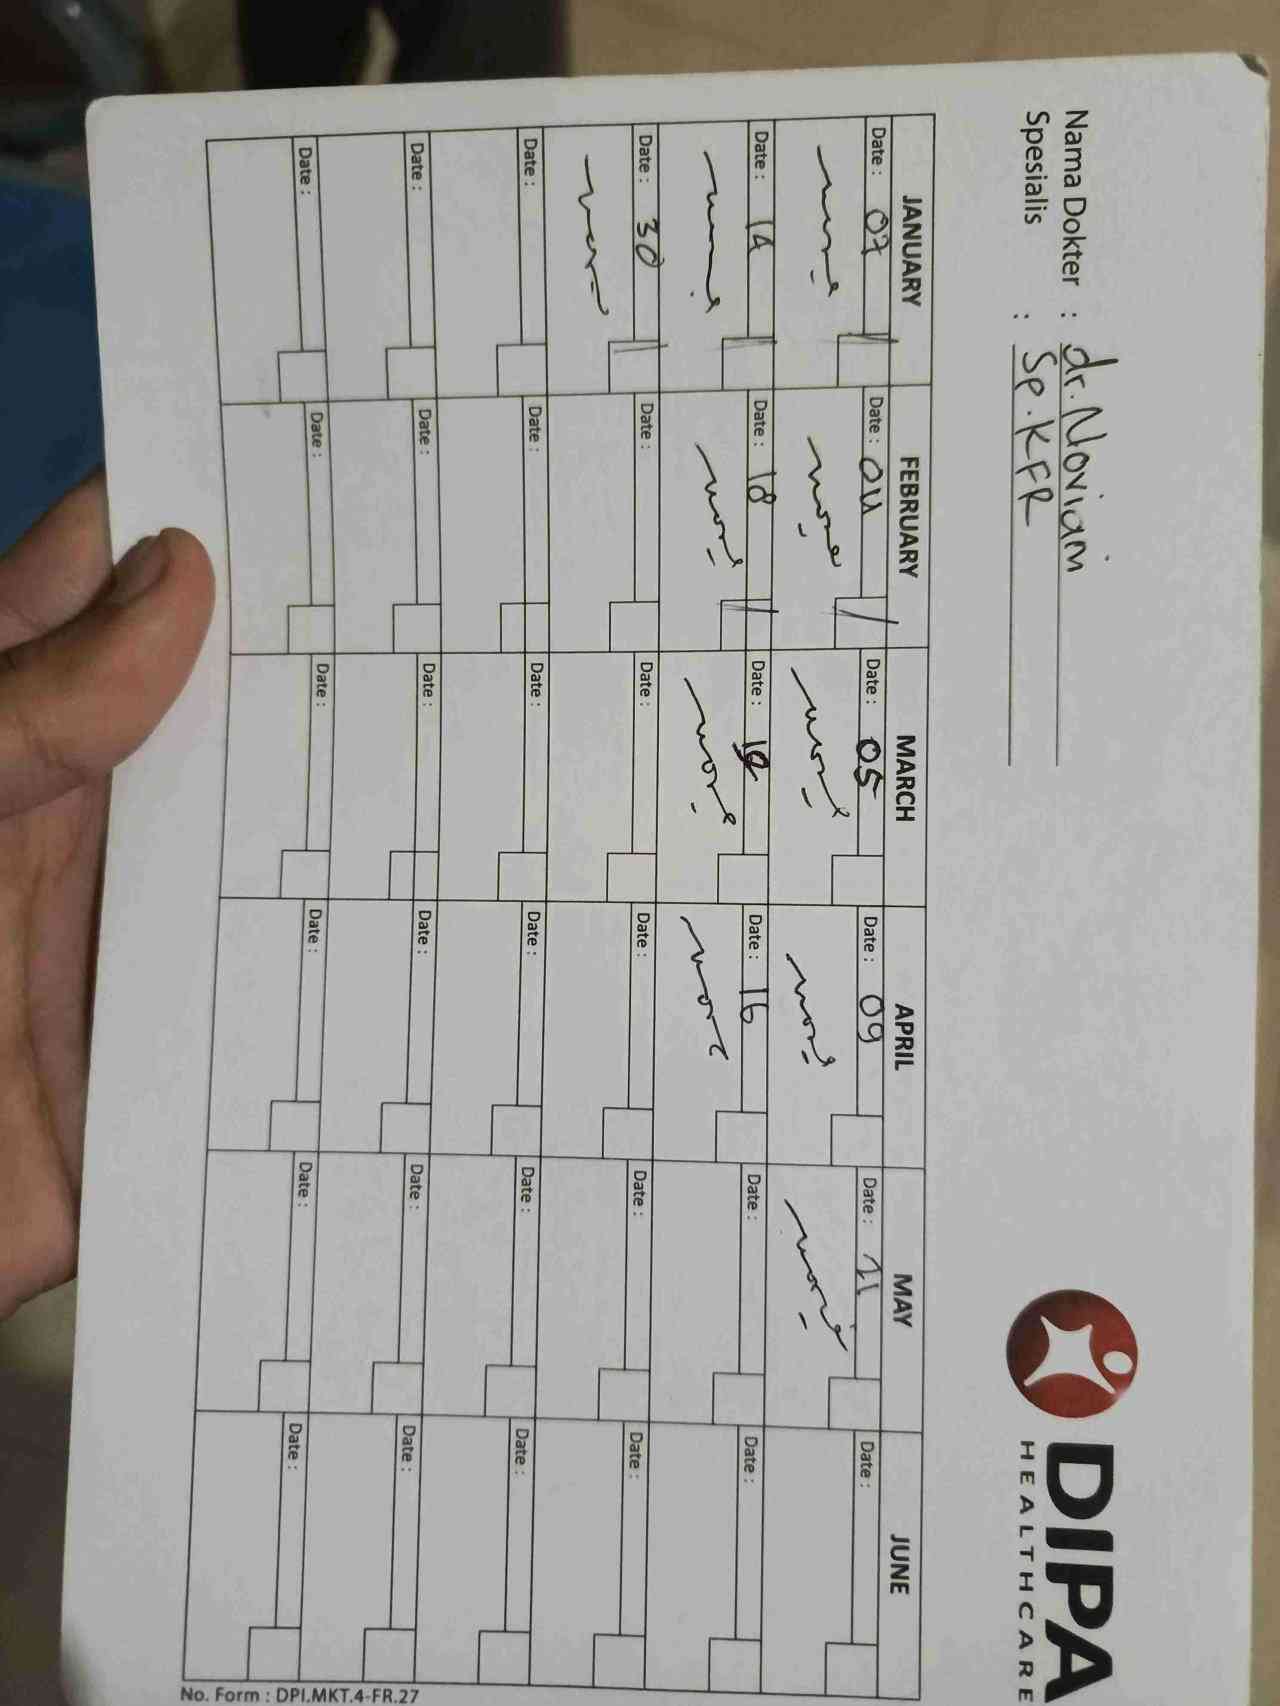 Nama Dokter : dr. Noviam
Spesialis : Sp.KFR
DIPA
HEALTHCARE
JANUARY FEBRUARY MARCH APRIL MAY JUNE
Date : 07 Date : 04 Date : 05 Date : 09 Date : 21 Date :
Date : 14 Date : 18 Date : Date : 16 Date : Date :
Date : 30 Date : Date : Date : Date : Date :
Date : Date : Date : Date : Date : Date :
Date : Date : Date : Date : Date : Date :
Date : Date : Date : Date : Date : Date :
No. Form : DPI.MKT.4-FR.27